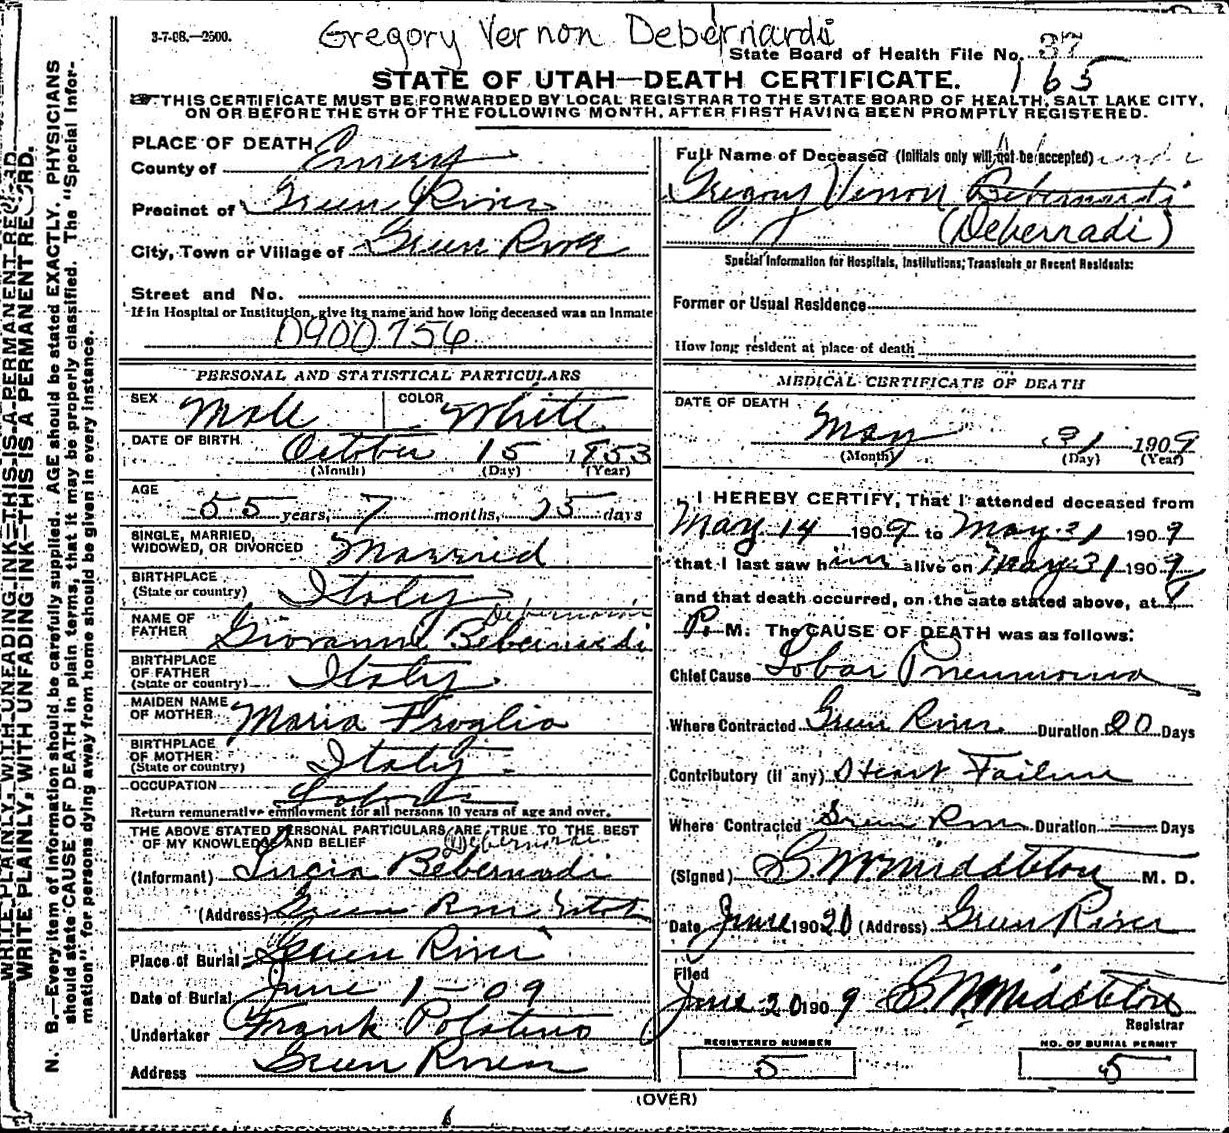 3-7-08.—2500.
Gregory Vernon Debernardi
State Board of Health File No. 37
165
STATE OF UTAH—DEATH CERTIFICATE.
THIS CERTIFICATE MUST BE FORWARDED BY LOCAL REGISTRAR TO THE STATE BOARD OF HEALTH, SALT LAKE CITY,
ON OR BEFORE THE 5TH OF THE FOLLOWING MONTH, AFTER FIRST HAVING BEEN PROMPTLY REGISTERED.
WRITE PLAINLY, WITH UNFADING INK—THIS IS A PERMANENT RECORD.
WRITE PLAINLY, WITH UNFADING INK—THIS IS A PERMANENT RECORD.
N. B.—Every item of information should be carefully supplied. AGE should be stated EXACTLY. PHYSICIANS
should state CAUSE OF DEATH in plain terms, that it may be properly classified. The "Special Infor-
mation" for persons dying away from home should be given in every instance.
PLACE OF DEATH
County of Emery
Precinct of Green River
City, Town or Village of Green River
Street and No.
If in Hospital or Institution, give its name and how long deceased was an Inmate
0900756
PERSONAL AND STATISTICAL PARTICULARS
SEX Male COLOR White
DATE OF BIRTH October 15 1853
(Month) (Day) (Year)
AGE
55 years, 7 months, 25 days
SINGLE, MARRIED,
WIDOWED, OR DIVORCED Married
BIRTHPLACE
(State or country) Italy
NAME OF
FATHER Giovanni Bebernardi
BIRTHPLACE
OF FATHER
(State or country) Italy
MAIDEN NAME
OF MOTHER Maria Froglia
BIRTHPLACE
OF MOTHER
(State or country) Italy
OCCUPATION
Labor
Return remunerative employment for all persons 10 years of age and over.
THE ABOVE STATED PERSONAL PARTICULARS ARE TRUE TO THE BEST
OF MY KNOWLEDGE AND BELIEF Debernardi
(Informant) Lucia Bebernardi
(Address) Green River Utah
Place of Burial Green River
Date of Burial June 1-09
Undertaker Frank Polatino
Address Green River
Full Name of Deceased (Initials only will not be accepted)
Gregory Vernon Bebernardi
(Debernadi)
Special Information for Hospitals, Institutions, Transients or Recent Residents:
Former or Usual Residence
How long resident at place of death
MEDICAL CERTIFICATE OF DEATH
DATE OF DEATH
May 31 1909
(Month) (Day) (Year)
I HEREBY CERTIFY, That I attended deceased from
May 14 1909 to May 31 1909
that I last saw him alive on May 31 1909
and that death occurred, on the date stated above, at
P. M. The CAUSE OF DEATH was as follows:
Chief Cause Lobar Pneumonia
Where Contracted Green River Duration 20 Days
Contributory (if any) Heart Failure
Where Contracted Green River Duration — Days
(Signed) C. M. Middleton M. D.
Date June 1909 20 (Address) Green River
Filed
June 20 1909 C. M. Middleton
Registrar
REGISTERED NUMBER
5
NO. OF BURIAL PERMIT
5
(OVER)